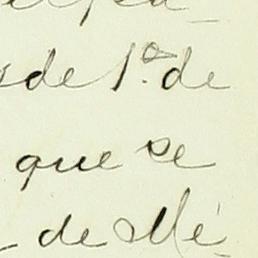 de 1º de
que se
de Mé-